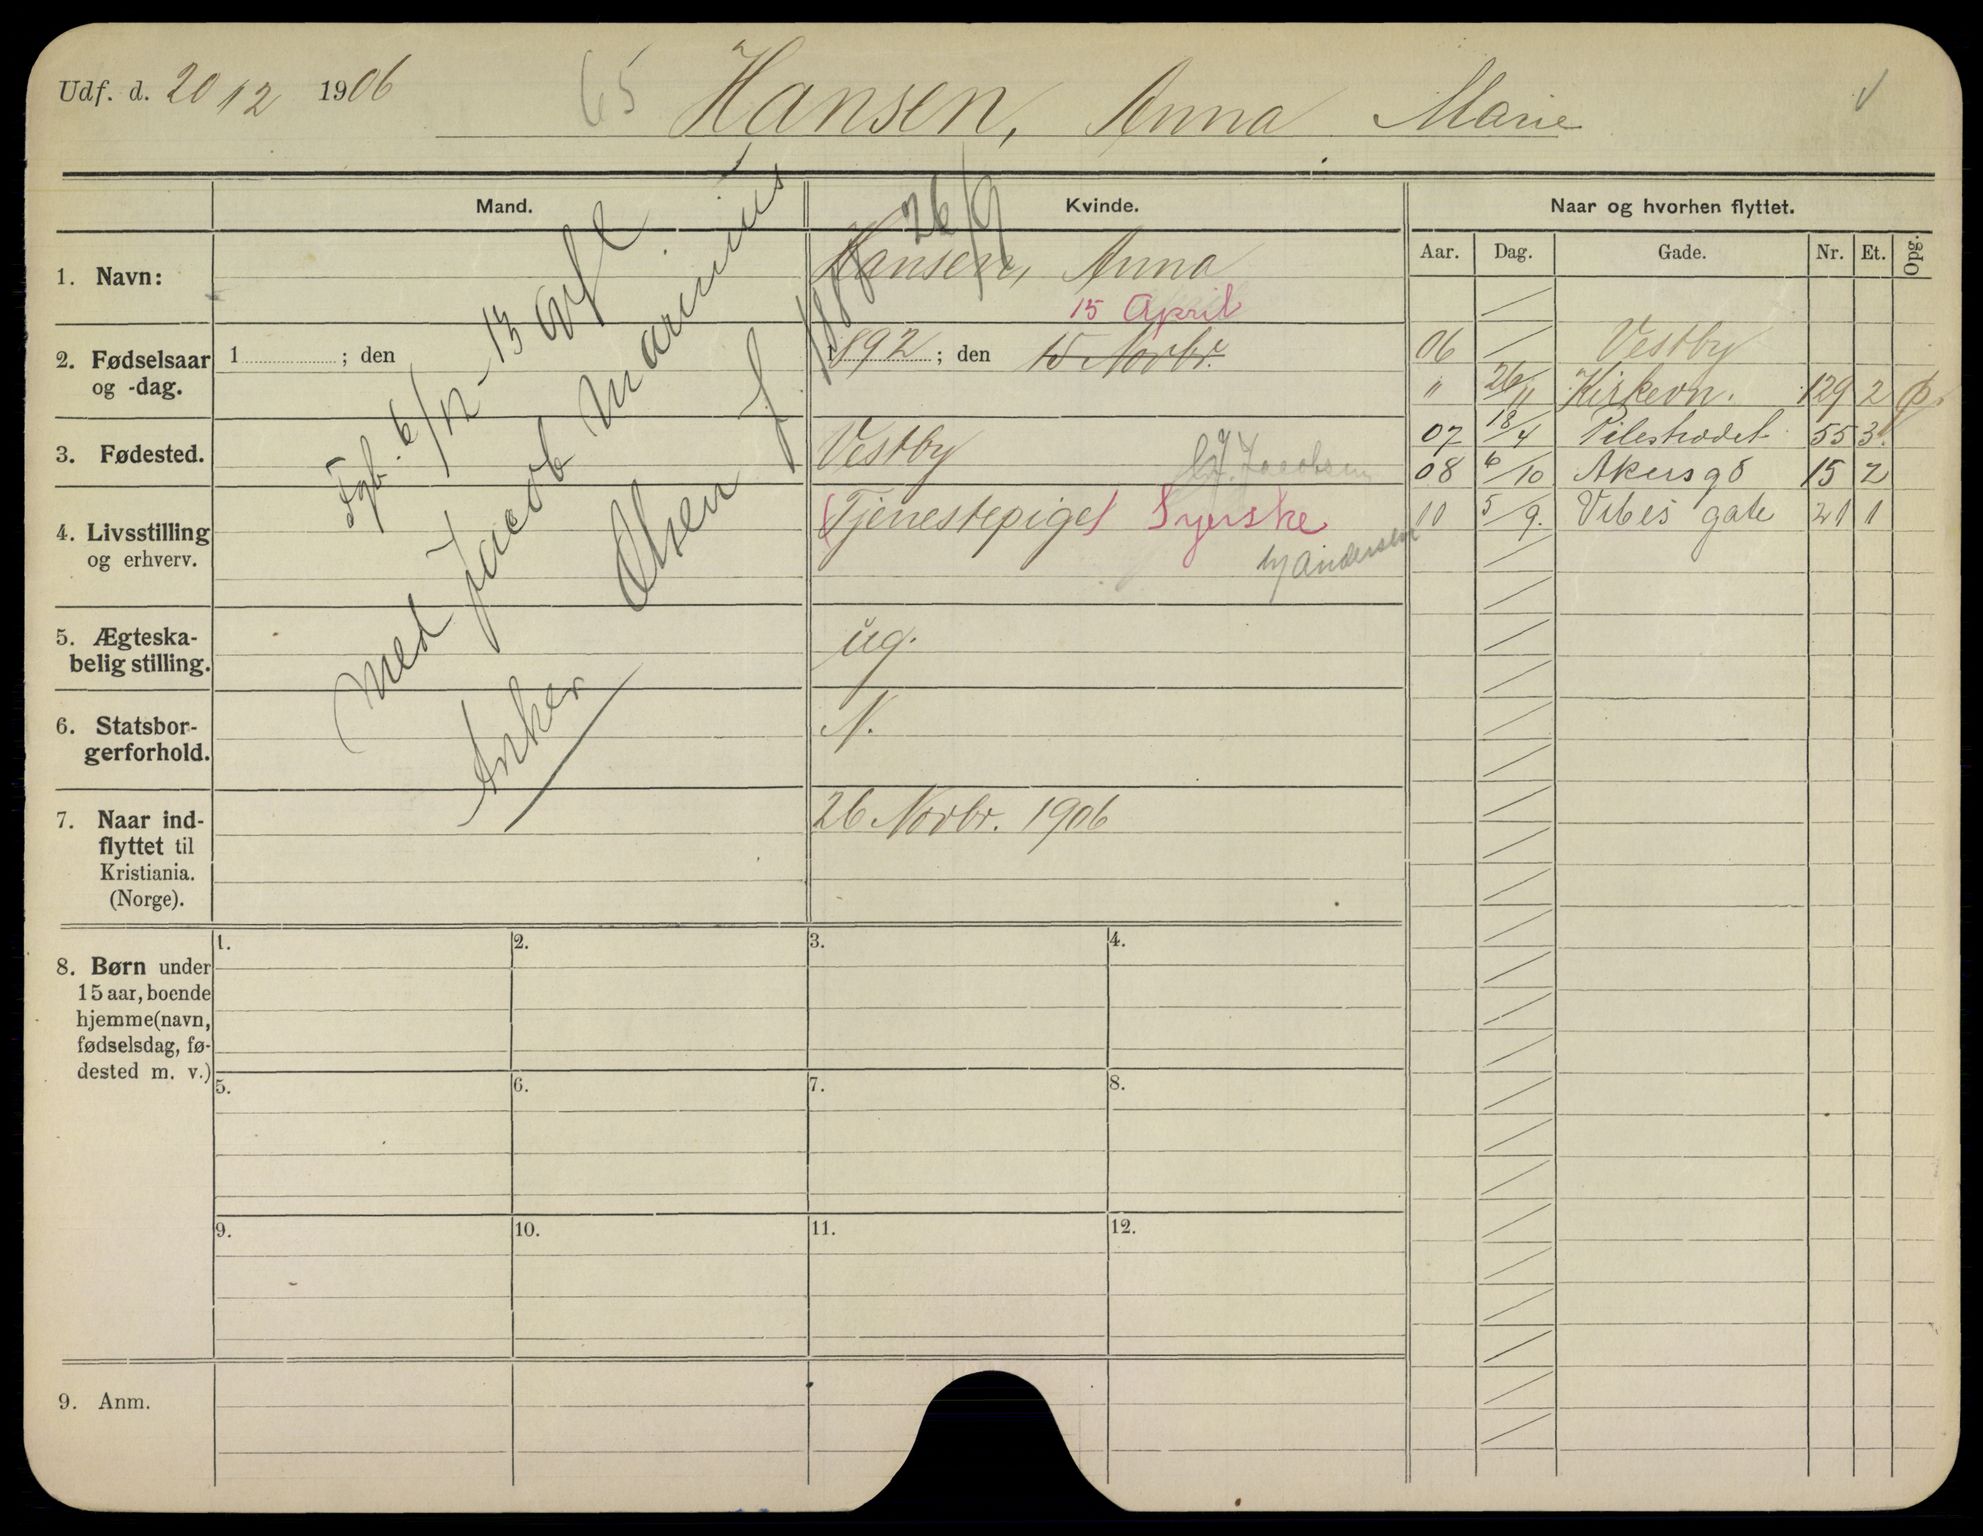 Udf. d. 20/12 1906
65 Hansen, Anna Marie
Mand.
Kvinde.
Naar og hvorhen flyttet.
Aar. Dag. Gade. Nr. Et. Opg.
1. Navn:
Hansen, Anna
15 April
2. Fødselsaar
og -dag.
1 ; den
1892 ; den 15 Novbr.
3. Fødested.
Vestby
J. Jacobsen
4. Livsstilling
og erhverv.
(Tjenestepige) Syerske
Andersen
5. Ægteska-
belig stilling.
ug.
6. Statsbor-
gerforhold.
N.
7. Naar ind-
flyttet til
Kristiania.
(Norge).
26 Novbr. 1906
Fgb. 6/12-13
med Jacob Marinius
Olsen f 1888 26/9
Asker
06 Vestby
" 26/11 Kirkevn. 129 2
07 18/4 Pilestrædet 55 3.
08 6/10 Akersg 15 2
10 5/9. Vibes gate 21 1
8. Børn under
15 aar, boende
hjemme (navn,
fødselsdag, fø-
dested m. v.)
1. 2. 3. 4.
5. 6. 7. 8.
9. 10. 11. 12.
9. Anm.